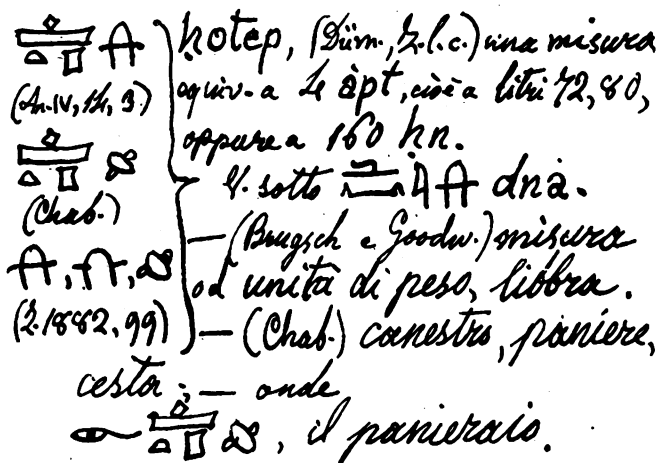 𓊵𓏏𓊪
(An. IV, 14, 3.)
𓊵𓏏𓊪
(Chab.)
(Z. 1882, 99)
ḥotep, (Düm., Z. l. c.) una misura
equiv. a 4 àpt, cioè a litri 72,80,
oppure a 160 hn.
V. sotto dnà.
— (Brugsch e Goodw.) misura
od unità di peso, libbra.
— (Chab.) canestro, paniere,
cesta; — onde
𓊵𓏏𓊪, il panieraio.